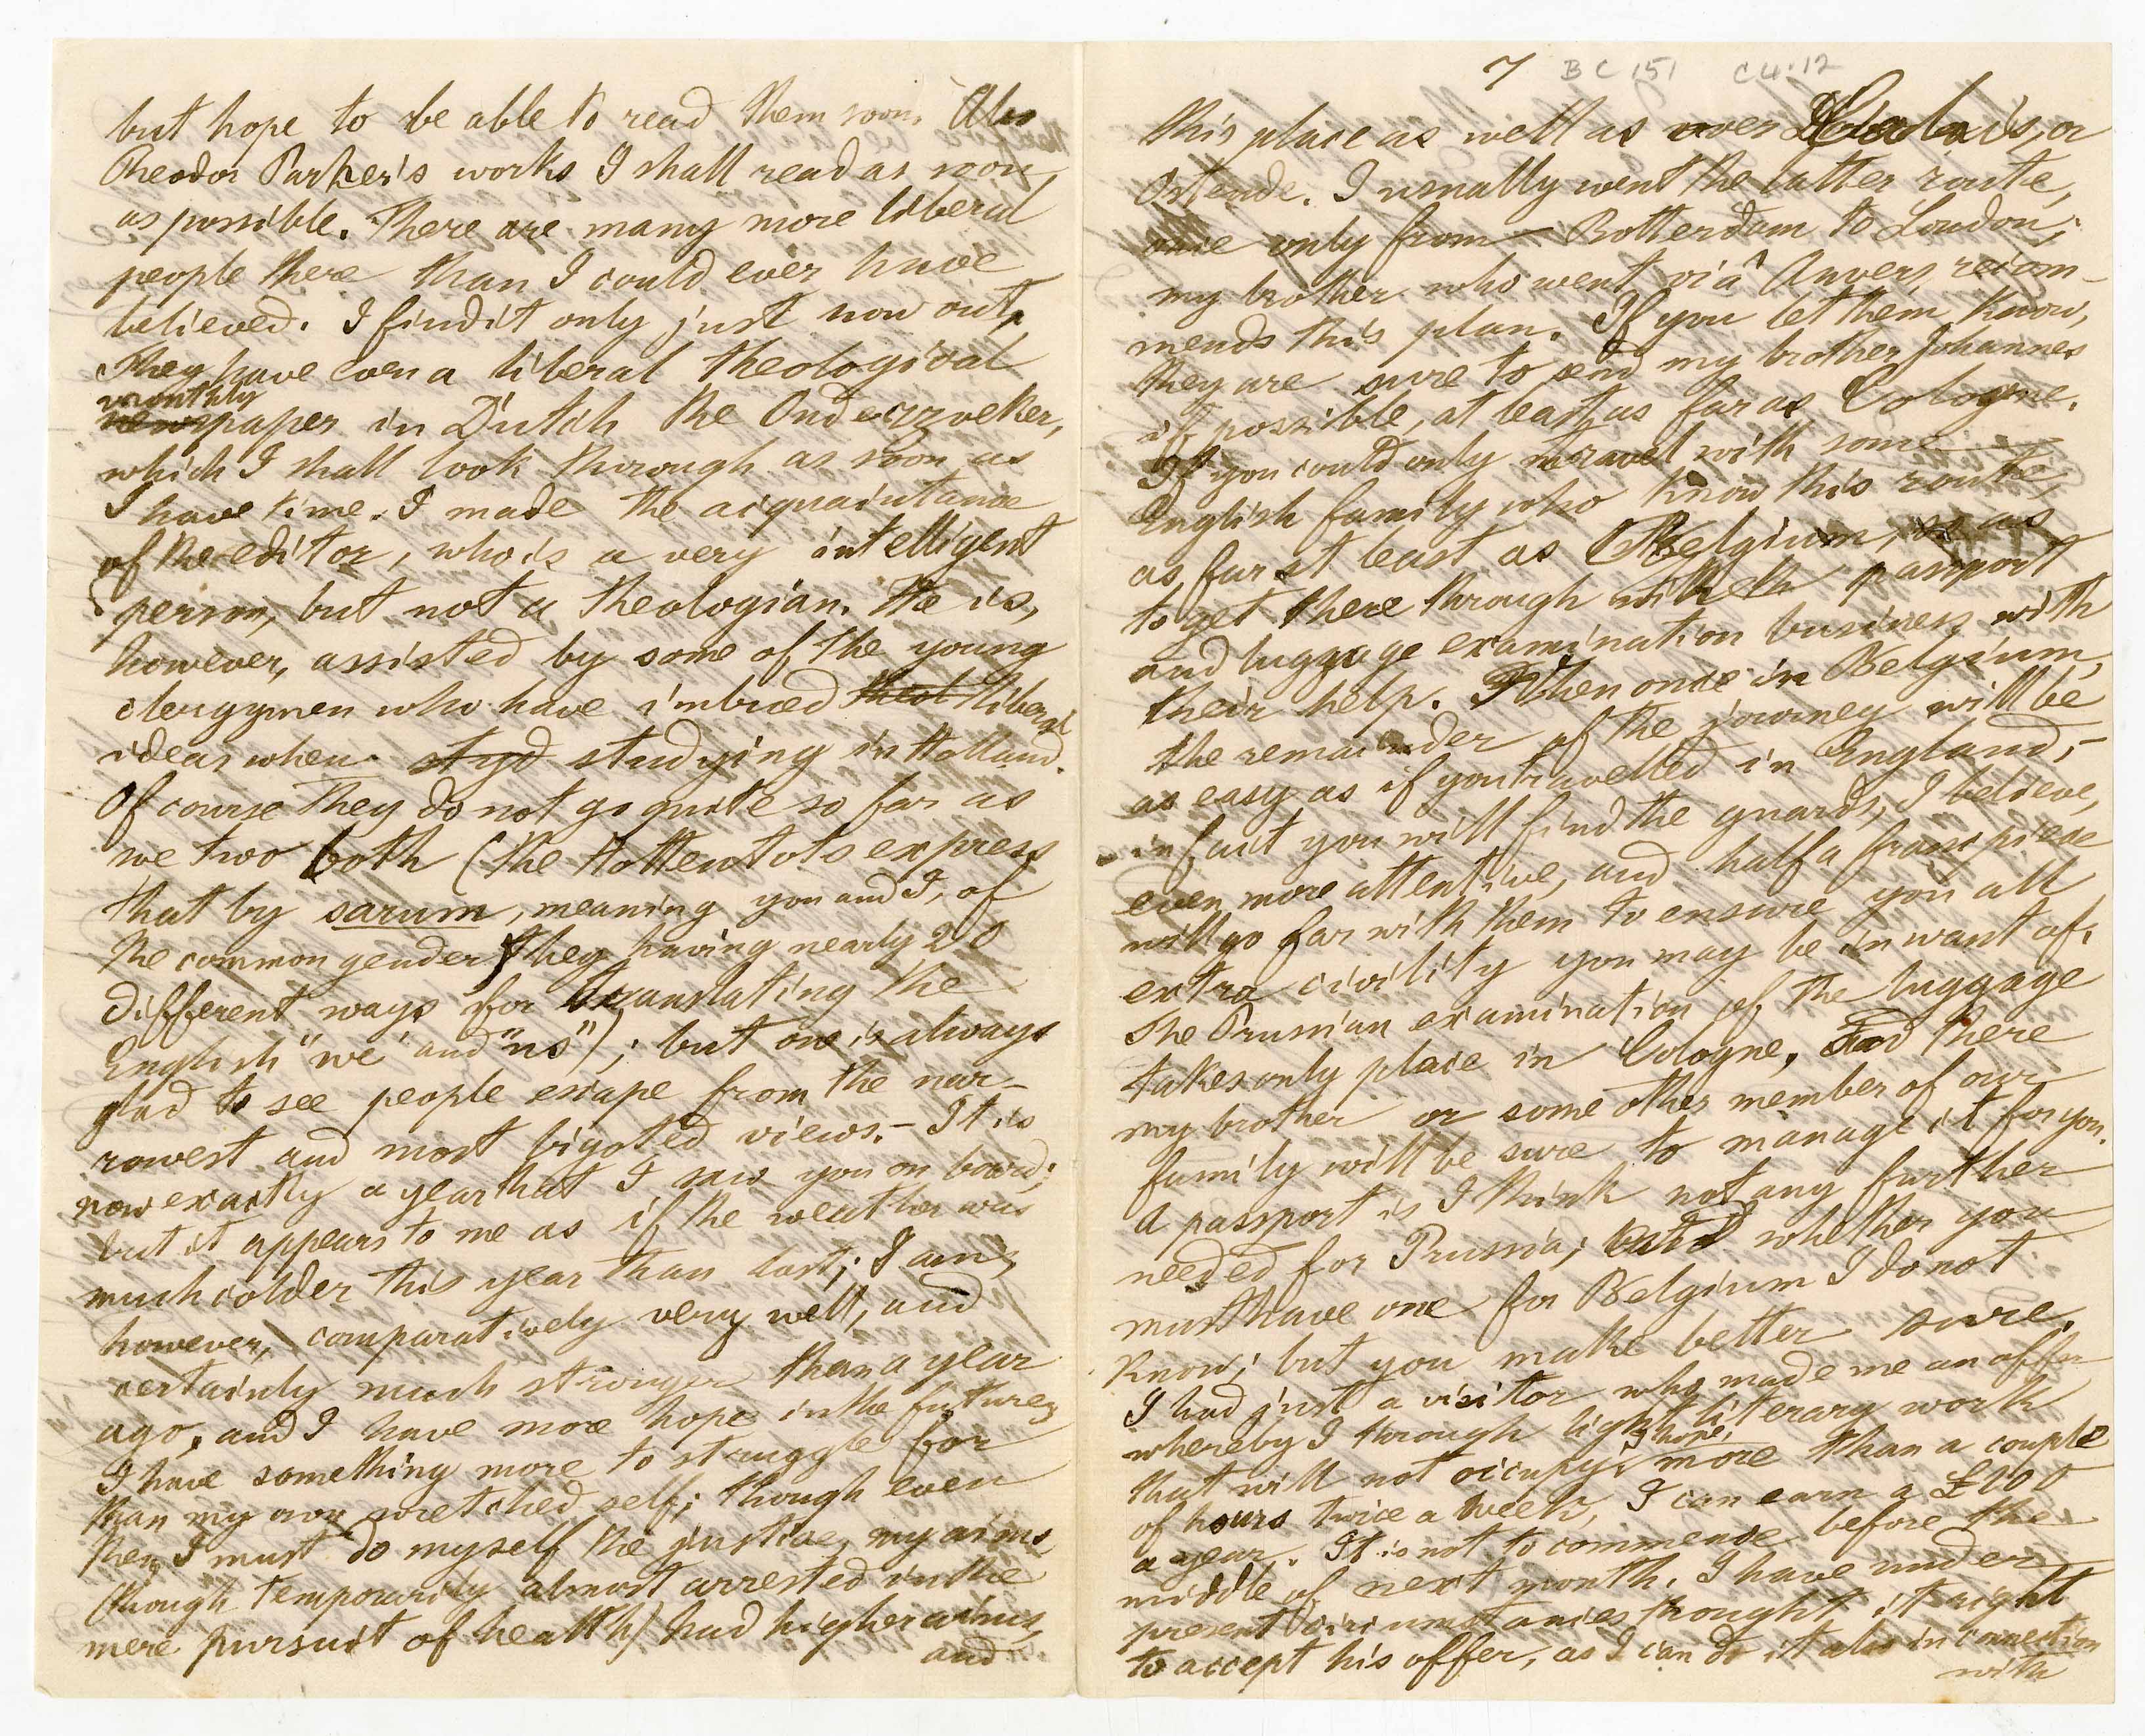 but hope to be able to read them soon. Also
Theodor Parker's works I shall read as soon
as possible. There are many more liberal
people there than I could ever have
believed. I find it only just now out,
They have even a liberal theological
monthly
newspaper in Dutch the Onderzoeker,
which I shall look through as soon as
I have time. I made the acquaintance
of the editor, who is a very intelligent
person, but not a theologian. He is,
however, assisted by some of the young
clergymen who have imbued theol liberal
ideas when studying in Holland.
Of course they do not go quite so far as
we two both (the Hottentots express
that by sarum, meaning you and I, of
the common gender, they having nearly 20
different ways for translating the
English "we" and "us"); but one is always
glad to see people escape from the nar-
rowest and most bigoted views. - It is
now exactly a year that I saw you on board;
but it appears to me as if the weather was
much colder this year than last; I am,
however, comparatively very well, and
certainly much stronger than a year
ago, and I have more hope in the future,
I have something more to struggle for
than my own wretched self; though even
then, I must do myself the justice, my aims
(though temporarily almost arrested in the
mere pursuit of health) had higher aims,
and
7 BC 151 C4.12
this place as well as over Calais, or
Ostende. I usually went the latter route,
once only from Rotterdam to London;
my brother who went viâ Anvers, recom-
mends this plan. If you let them know,
they are sure to send my brother Johannes
if possible, at least as far as Cologne.
If you could only travel with some
English family who know this route,
as far at least as Belgium, so as
to get there through with the passport
and luggage examination business with
their help. When once in Belgium,
the remainder of the journey will be
as easy as if you travelled in England, -
in fact you will find the guards, I believe,
even more attentive, and half a franc piece
will go far with them to ensure you all
extra civility you may be in want of.
The Prussian examination of the luggage
takes only place in Cologne, and there
my brother or some other member of our
family will be sure to manage it for you.
A passport is I think not any further
needed for Prussia; but whether you
must have one for Belgium I do not
know; but you make better sure.
I had just a visitor who made me an offer
whereby I through light literary work
I hope,
that will not occupy more than a couple
of hours twice a week, I can earn a £100
a year. It is not to commence before the
middle of next month. I have under
present circumstances thought it right
to accept his offer, as I can do it also in connection
with